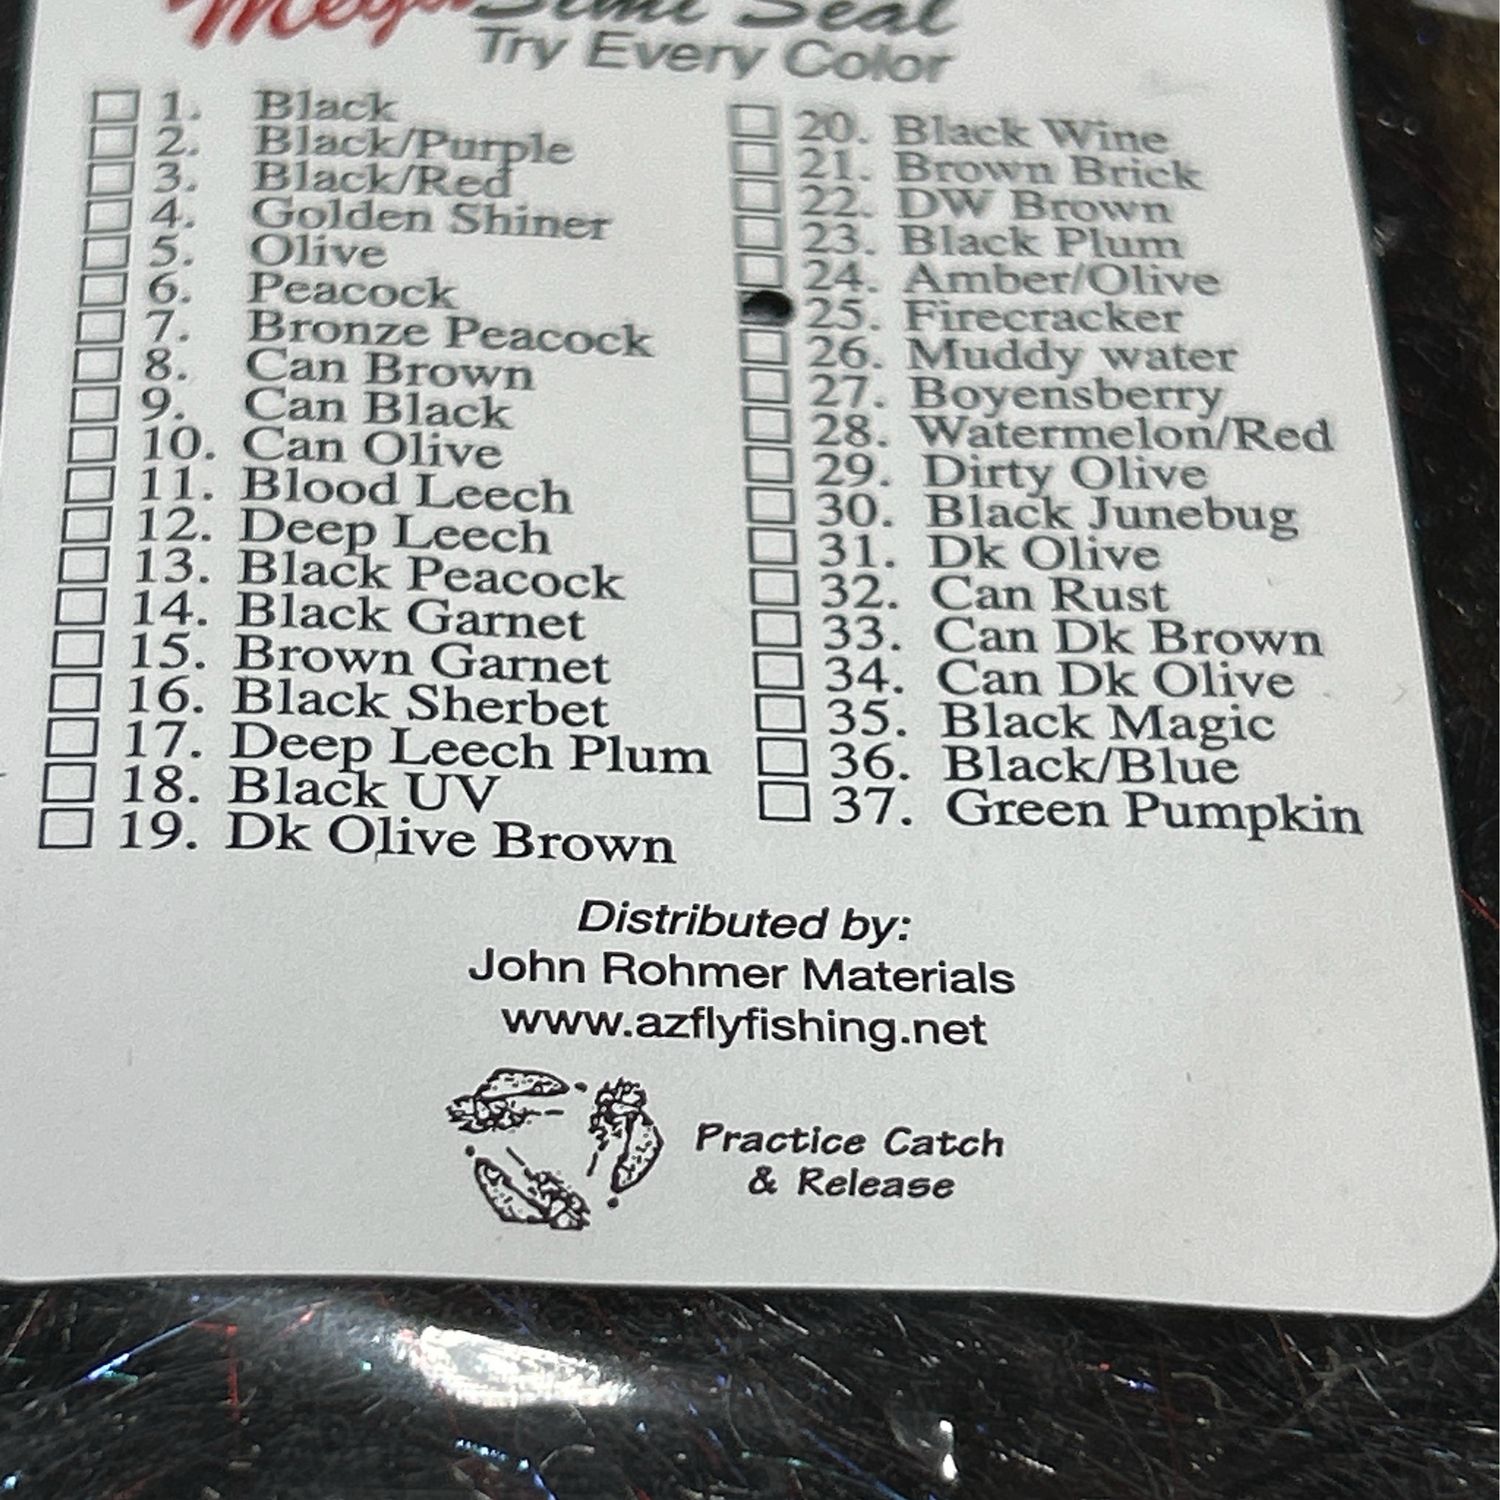 Mega Simi Seal
Try Every Color
1. Black
2. Black/Purple
3. Black/Red
4. Golden Shiner
5. Olive
6. Peacock
7. Bronze Peacock
8. Can Brown
9. Can Black
10. Can Olive
11. Blood Leech
12. Deep Leech
13. Black Peacock
14. Black Garnet
15. Brown Garnet
16. Black Sherbet
17. Deep Leech Plum
18. Black UV
19. Dk Olive Brown
20. Black Wine
21. Brown Brick
22. DW Brown
23. Black Plum
24. Amber/Olive
25. Firecracker
26. Muddy water
27. Boyensberry
28. Watermelon/Red
29. Dirty Olive
30. Black Junebug
31. Dk Olive
32. Can Rust
33. Can Dk Brown
34. Can Dk Olive
35. Black Magic
36. Black/Blue
37. Green Pumpkin
Distributed by:
John Rohmer Materials
www.azflyfishing.net
Practice Catch
& Release